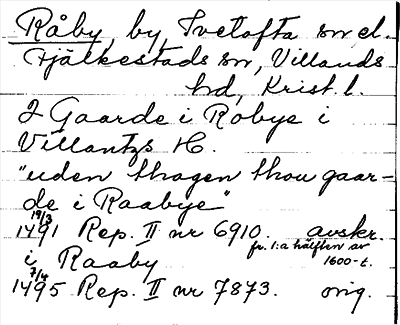 Råby by, Ivetofta sn el.
Fjälkestads sn, Villands
hd, Krist. l.
2 Gaarde i Robye i
Villantzs H.
"uden thagen thou gaar-
de i Raabye"
19/3
1491 Rep. II nr 6910. avskr.
fr. 1:a hälften av
1600-t.
i Raaby
7/4
1495 Rep. II nr 7873. orig.